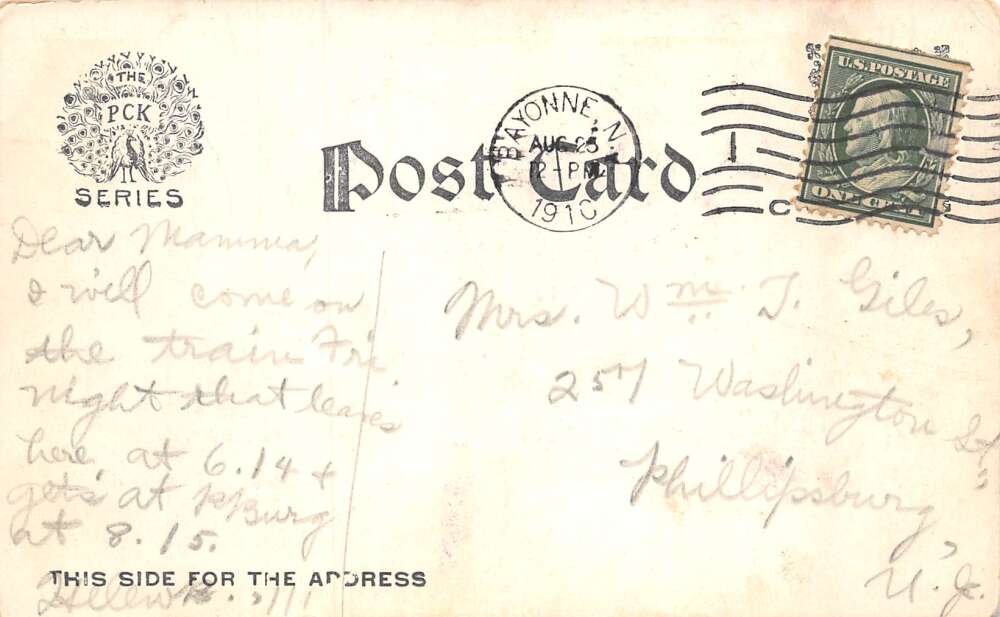 THE
PCK
SERIES
Post Card
BAYONNE, N.
AUG 25
12-PM
1910
U.S. POSTAGE
ONE CENT
Dear Mamma,
I will come on
the train Fri
night that leaves
here at 6.14 +
gets at P'Burg
at 8.15.
Mrs. Wm. T. Giles,
257 Washington St.,
Phillipsburg,
N.J.
THIS SIDE FOR THE ADDRESS